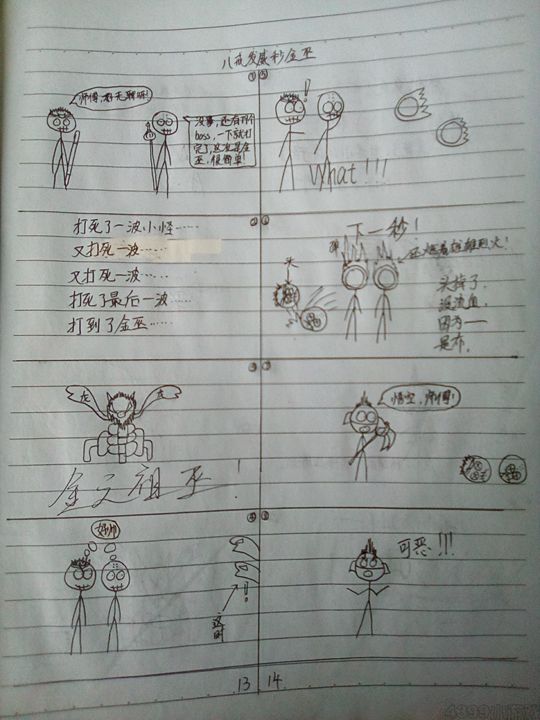 八戒发威秒金巫
师傅,好无聊啊!
没事,还有两个
boss,一下就打
完了,这次是金
巫,很简单!
打死了一波小怪……
又打死一波……
又打死一波……
打死了最后一波……
打到了金巫……
龙
龙
金之祖巫!
好帅
这时
!
What!!!
下一秒!
还燃着熊熊烈火!
头
头掉了
没流血
因为——
是布.
悟空,师傅!
可恶!!!
13
14
4399小游戏